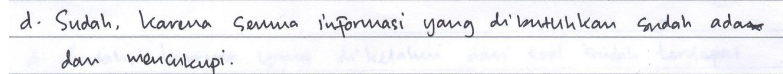 d. Sudah, karena semua informasi yang dibutuhkan sudah ada
dan mencukupi.